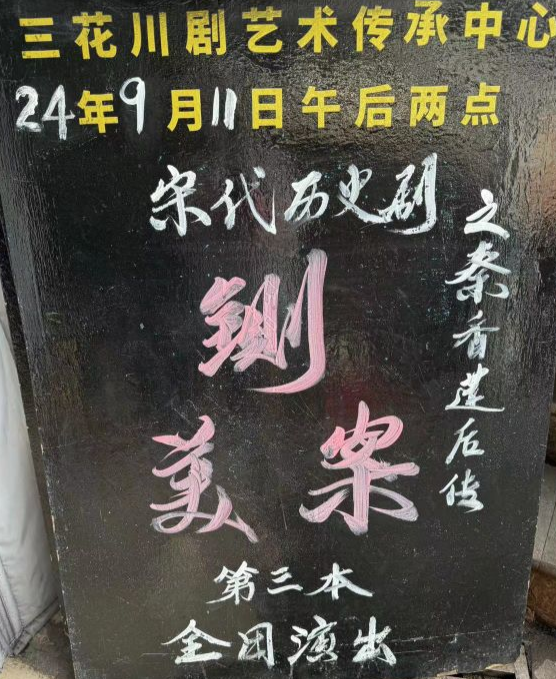 三花川剧艺术传承中心
24年9月11日午后两点
宋代历史剧
之秦香莲后传
铡
美案
第三本
全团演出